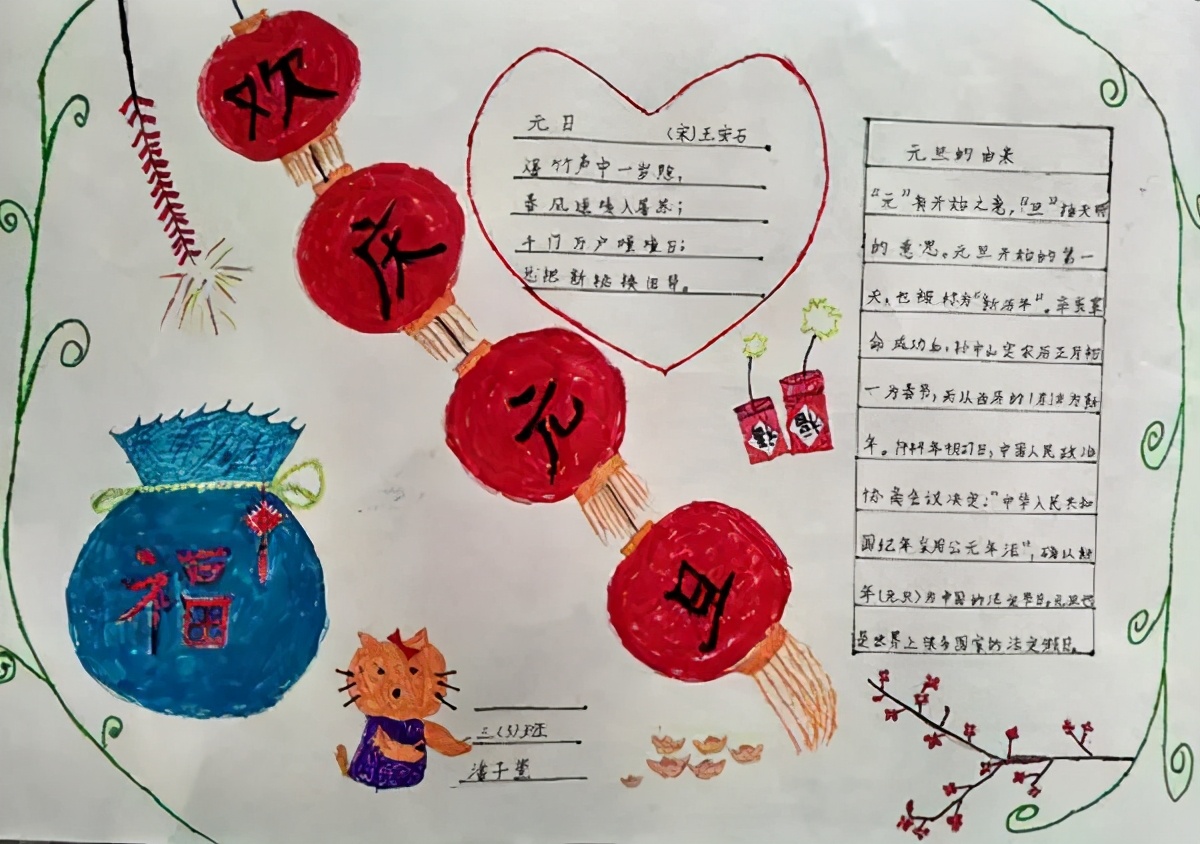 欢
庆
元
旦
元日
(宋)王安石
爆竹声中一岁除,
春风送暖入屠苏;
千门万户曈曈日;
总把新桃换旧符。
福
福
福
元旦的由来
“元”有开始之意,“旦”指天明
的意思。元旦开始的第一
天,也被称为“新历年”。辛亥革
命成功后,孙中山
一为春节,
年。1949年9月27日,中国人民政治
协商会议决定:“中华人民共和
国纪年采用公元年法”,确认新
年(元旦)为中国的法定节日,元旦也
是世界上很多国家的法定假日。
三(3)班
潘子萱